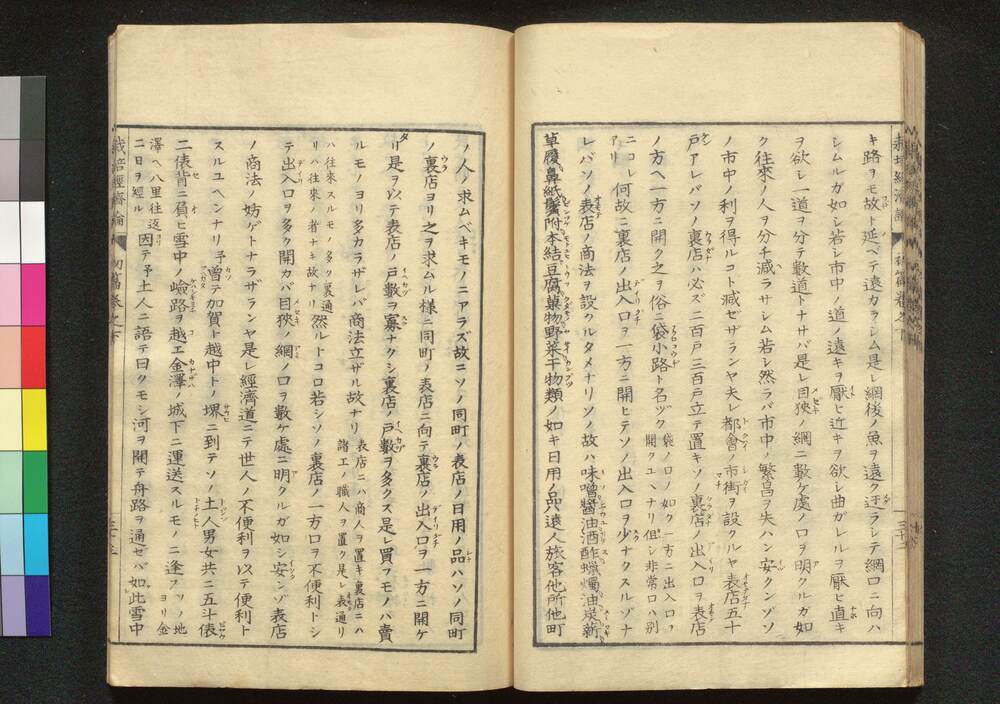 キ路ヲモ故ト延ベテ遠カラシム是レ網後ノ魚ヲ遠ク逐ラシテ網口ニ向ハ
シムルガ如シ若シ市中ノ道ノ遠キヲ厭ヒ近キヲ欲レ曲ガレルヲ厭ヒ直キ
ヲ欲レ一道ヲ分テ數道トナサバ是レ目狹ノ網ニ數ケ處ノ口ヲ明クルガ如
ク往來ノ人ヲ分チ減ラサシム若シ然ラバ市中ノ繁昌ヲ失ハン安クンゾソ
ノ市中ノ利ヲ得ルコト減ゼザランヤ夫レ都會ノ市街ヲ設クルヤ表店五十
戸アレバソノ裏店ハ必ズ二百戸三百戸立テ置キソノ裏店ノ出入口ヲ表店
ノ方ヘ一方ニ開ク之ヲ俗ニ袋小路ト名ヅク
袋ノ口ノ如ク一方ニ出入口ヲ
開クユヘナリ但シ非常口ハ別
アリ
ニコレ何故ニ裏店ノ出入口ヲ一方ニ開ヒテソノ出入口ヲ少ナクスルゾナ
レバソノ表店ノ商法ヲ設クルタメナリソノ故ハ味噌醬油酒酢蠟燭油炭薪
草履鼻紙鬢附本結豆腐菓物野菜干物類ノ如キ日用ノ品遠人旅客他所他町
ノ人ノ求ムベキモノニアラズ故ニソノ同町ノ表店ノ日用ノ品ハソノ同町
ノ裏店ヨリ之ヲ求ムル樣ニ同町ノ表店ニ向テ裏店ノ出入口ヲ一方ニ開ケ
リ是ヲ以テ表店ノ戸數ヲ寡ナクシ裏店ノ戸數ヲ多クス是レ買フモノハ賣
ルモノヨリ多カラザレバ商法立ザル故ナリ
表店ニハ商人ヲ置キ裏店ニハ
諸工ノ職人ヲ置ク是レ表通リ
ハ往來スルモノ多ク裏通
リハ往來ノ者ナキ故ナリ
然ルトコロ若シソノ裏店ノ一方口ヲ不便利トシ
テ出入口ヲ多ク開カバ目狹ノ網ノ口ヲ數ケ處ニ明クルガ如シ安ンゾ表店
ノ商法ノ妨ゲトナラザランヤ是レ經濟道ニテ世人ノ不便利ヲ以テ便利ト
スルユヘンナリ予曾テ加賀ト越中トノ堺ニ到テソノ土人男女共ニ五斗俵
二俵背ニ負ヒ雪中ノ嶮路ヲ越エ金澤ノ城下ニ運送スルモノニ逢フ
ソノ地
ヨリ金
澤ヘ八里往返
二日ヲ經ル
因テ予土人ニ語テ曰クモシ河ヲ開テ舟路ヲ通ゼバ如此雪中
栽培經濟論
初篇卷之下
三十三